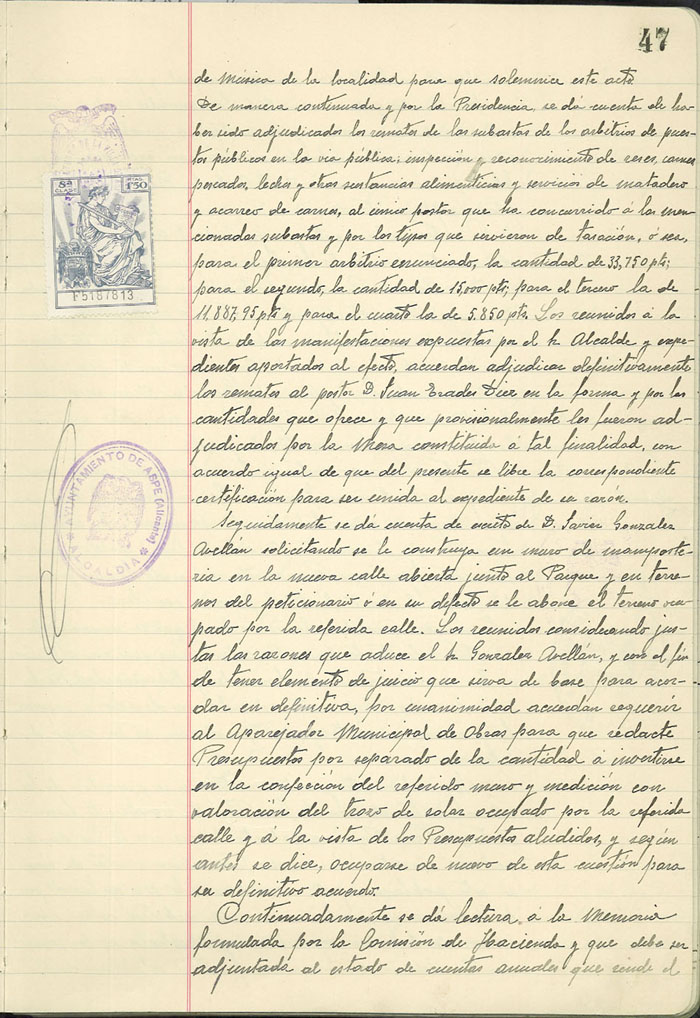 47
de música de la localidad para que solemnice este acto
De manera continuada y por la Presidencia, se dá cuenta de ha-
ber sido adjudicados los remates de las subastas de los arbitrios de pues-
tos públicos en la vía pública; inspección y reconocimiento de reses, carnes
pescados, leches y otras sustancias alimenticias y servicios de matadero
y acarreo de carnes, al único postor que ha concurrido á las men-
cionadas subastas y por los tipos que sirvieron de tasación, ó sea,
para el primer arbitrio enunciado, la cantidad de 33,750 pts;
para el segundo, la cantidad de 15,000 pts; para el tercero la de
11.887,95 pts y para el cuarto la de 5.850 pts. Los reunidos á la
vista de las manifestaciones expuestas por el Sr. Alcalde y expe-
dientes aportados al efecto, acuerdan adjudicar definitivamente
los remates al postor D. Juan Erades Diez en la forma y por las
cantidades que ofrece y que provisionalmente les fueron ad-
judicados por la Mesa constituida á tal finalidad, con
acuerdo igual de que del presente se libre la correspondiente
certificación para ser unida al expediente de su razón.
Seguidamente se dá cuenta de escrito de D. Javier Gonzalez
Avellán solicitando se le construya un muro de mamposte-
ria en la nueva calle abierta junto al Parque y en terre-
nos del peticionario ó en su defecto se le abone el terreno ocu-
pado por la referida calle. Los reunidos considerando jus-
tas las razones que aduce el Sr. Gonzalez Avellán, y con el fin
de tener elemento de juicio que sirva de base para acor-
dar en definitiva, por unanimidad acuerdan requerir
al Aparejador Municipal de Obras para que redacte
Presupuestos por separado de la cantidad á invertirse
en la confección del referido muro y medición con
valoración del trozo de solar ocupado por la referida
calle y á la vista de los Presupuestos aludidos, y según
antes se dice, ocuparse de nuevo de esta cuestión para
su definitivo acuerdo.
Continuadamente se dá lectura á la Memoria
formulada por la Comisión de Hacienda y que debe ser
adjuntada al estado de cuentas anuales que rinde el
8ª CLASE
PTAS. 1'50
F5187813
AYUNTAMIENTO DE ASPE (Alicante)
* ALCALDIA *